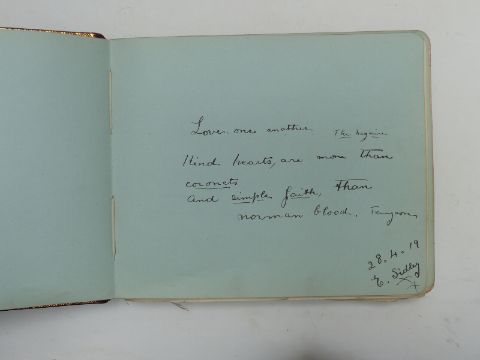 Loves one another
Kind hearts, are more than
coronets
and simple faith, than
norman blood. Tennyson
28.4.19
E. Sidley